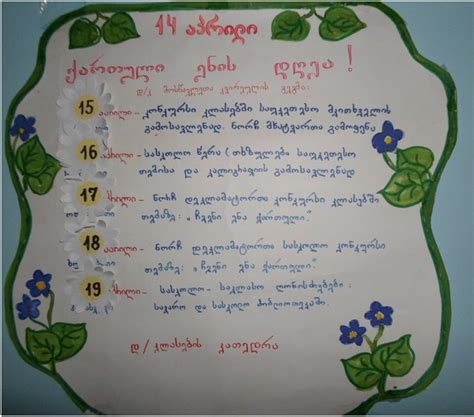 14 აპრილი
ქართული ენის დღეა !
დ/კ მოსწავლეთა კვირეულის გეგმა:
15 აპრილი – კონკურსი კლასებში საუკეთესო მკითხველის
გამოსავლენად. ნორჩ მხატვართა გამოფენა
16 აპრილი – სასკოლო წერა (თხზულება) საუკეთესო
თემისა და კალიგრაფიის გამოსავლენად
17 აპრილი – ნორჩ დეკლამატორთა კონკურსი კლასებში
თემაზე: „ჩვენი ენა ქართული“.
18 აპრილი – ნორჩ დეკლამატორთა სასკოლო კონკურსი
თემაზე: „ჩვენი ენა ქართული“.
19 აპრილი – სასკოლო – საკლასო ღონისძიებები
საჯარო და სასკოლო ბიბლიოთეკაში.
დ/კლასების კათედრა